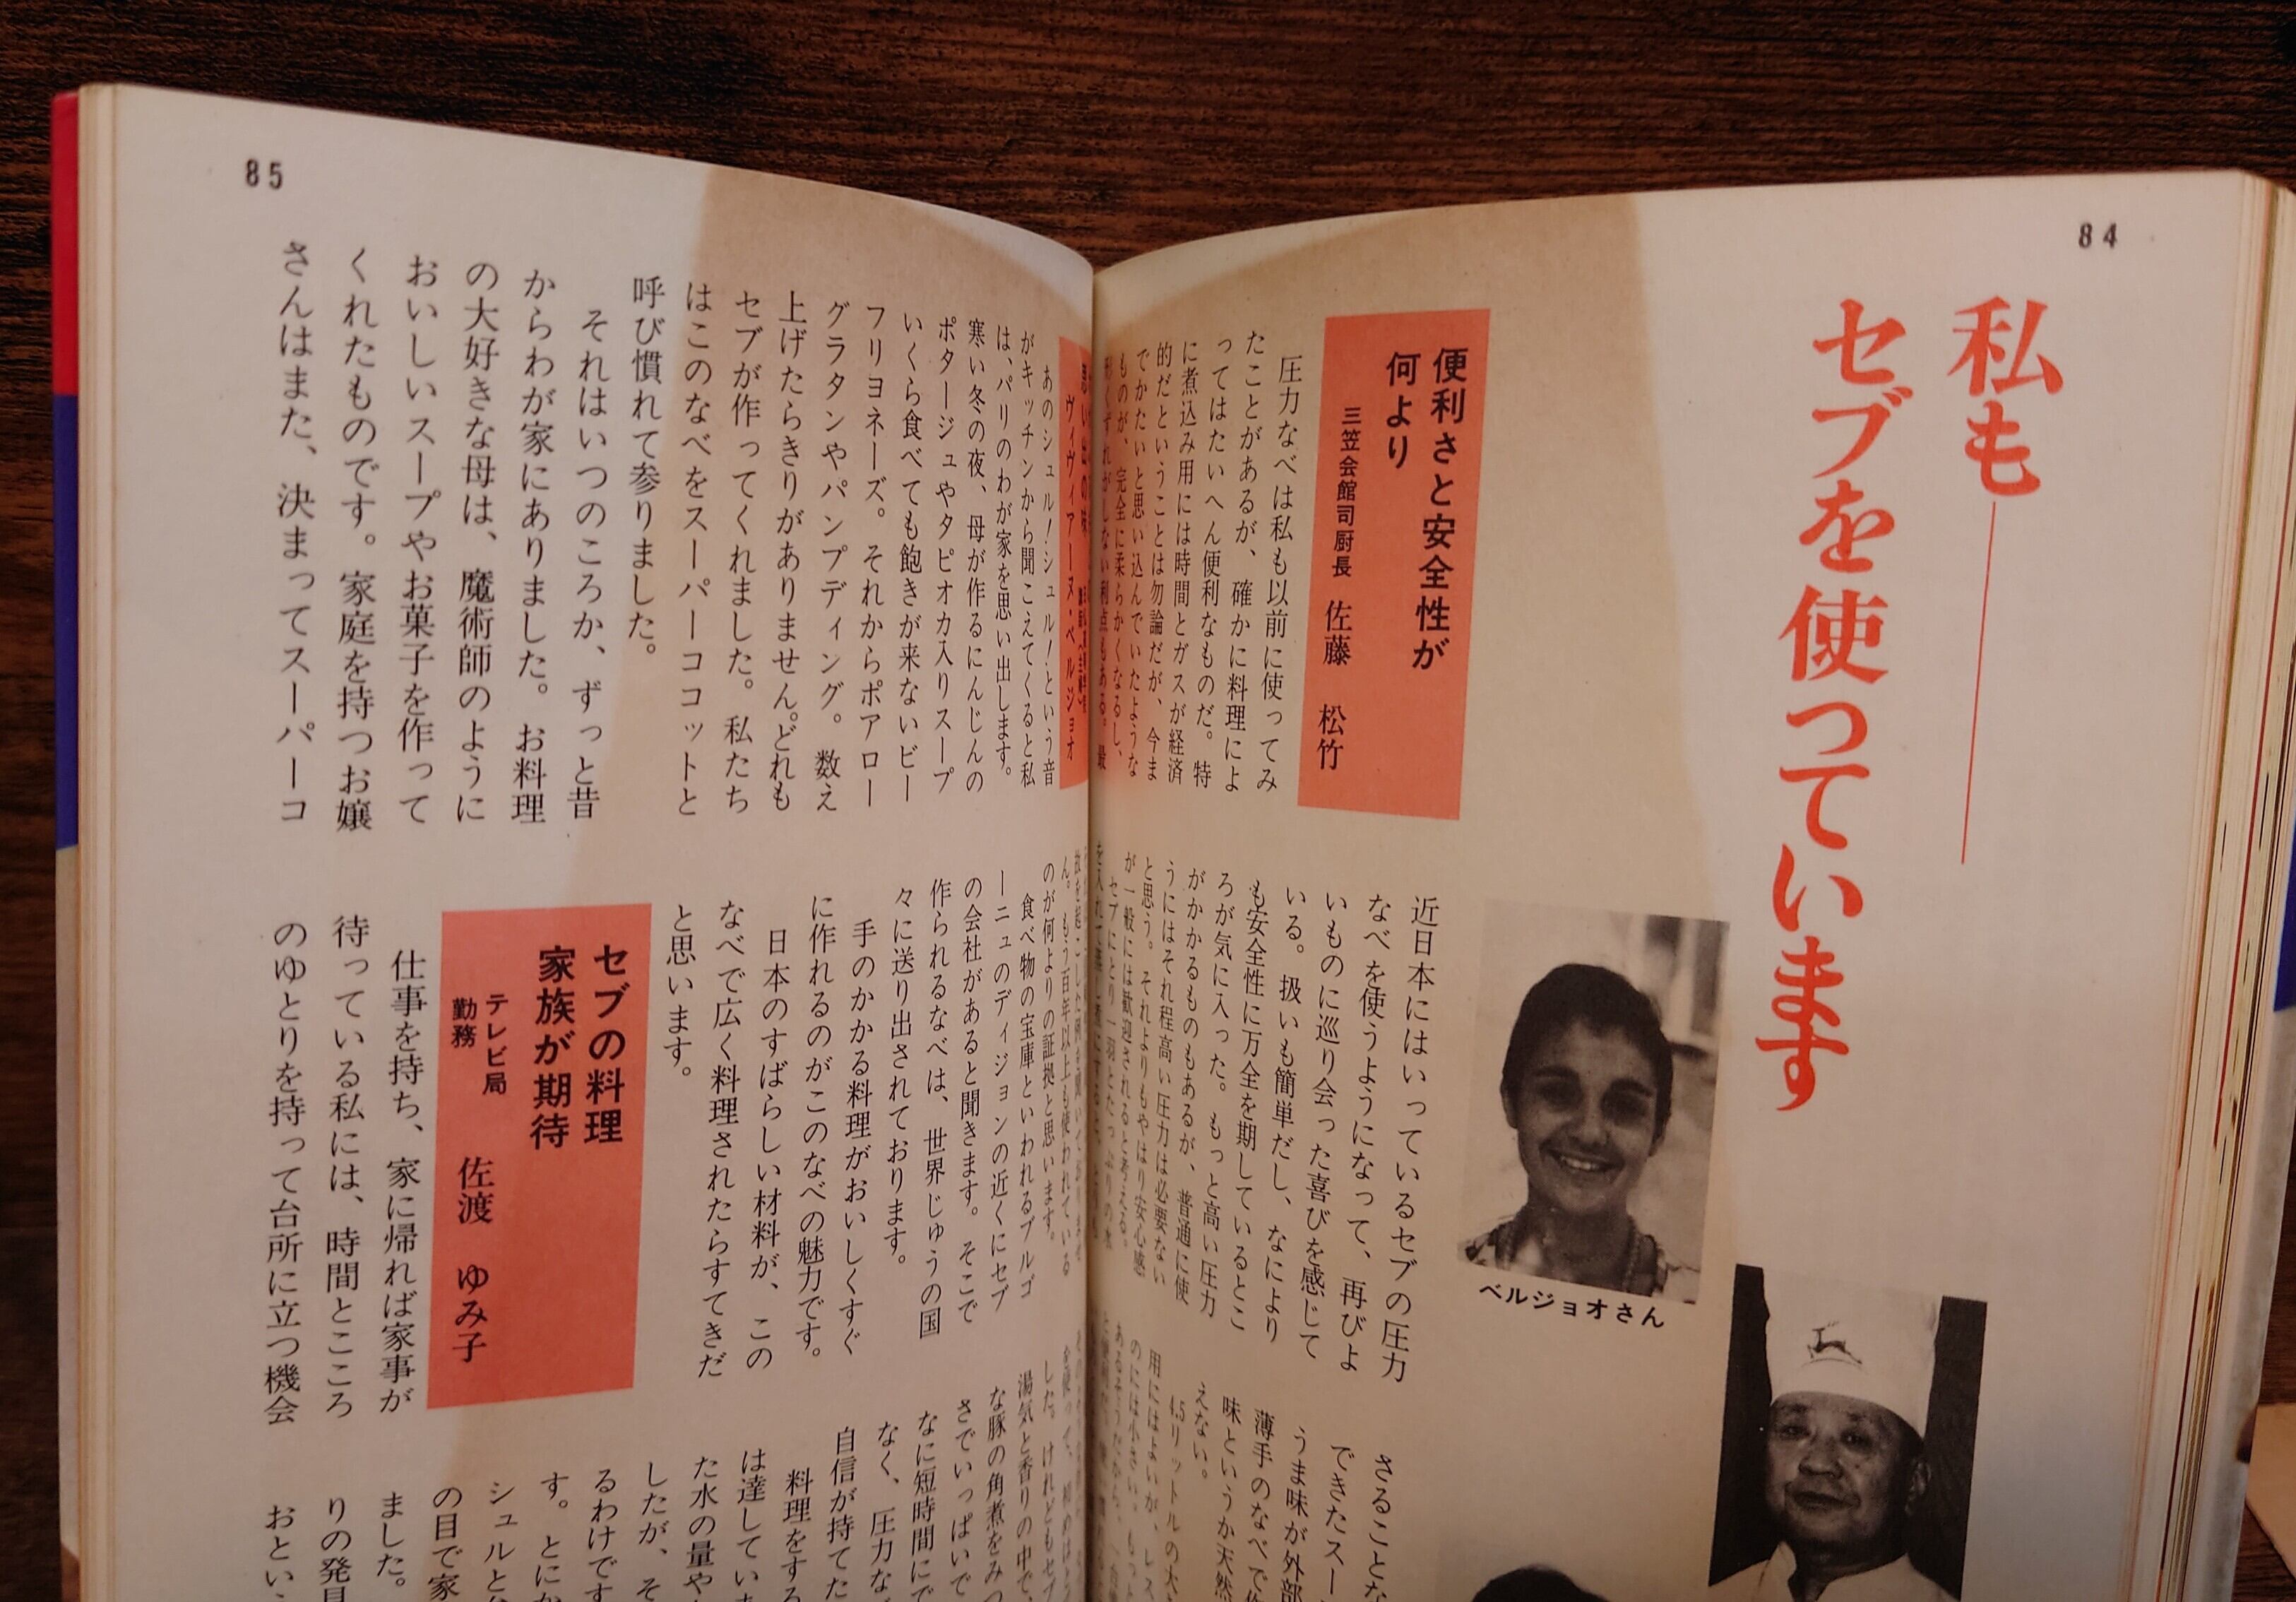 84
私も
セブを使っています
便利さと安全性が
何より
三笠会館司厨長 佐藤 松竹
圧力なべは私も以前に使ってみ
たことがあるが、確かに料理によ
ってはたいへん便利なものだ。特
に煮込み用には時間とガスが経済
的だということは勿論だが、今ま
でかたいと思い込んでいたような
ものが、完全に柔らかくなるし、
形くずれがしない利点もある。最
近日本にはいっているセブの圧力
なべを使うようになって、再びよ
いものに巡り会った喜びを感じて
いる。扱いも簡単だし、なにより
も安全性に万全を期しているとこ
ろが気に入った。もっと高い圧力
がかかるものもあるが、普通に使
うにはそれ程高い圧力は必要ない
と思う。それよりもやはり安心感
が一般には歓迎されると考える。
ベルジョオさん
さることな
できたスー
うま味が外部
薄手のなべで作
味というか天然
えない。
4.5リットルの大
用にはよいが、レス
のには小さい。もっと
85
思い出の味
ヴィヴィアーヌ・ベルジョオ
あのシュル!シュル!という音
がキッチンから聞こえてくると私
は、パリのわが家を思い出します。
寒い冬の夜、母が作るにんじんの
ポタージュやタピオカ入りスープ
いくら食べても飽きが来ないビー
フリヨネーズ。それからポアロー
グラタンやパンプディング。数え
上げたらきりがありません。どれも
セブが作ってくれました。私たち
はこのなべをスーパーココットと
呼び慣れて参りました。
それはいつのころか、ずっと昔
からわが家にありました。お料理
の大好きな母は、魔術師のように
おいしいスープやお菓子を作って
くれたものです。家庭を持つお嬢
さんはまた、決まってスーパーコ
ん。もう百年以上も使われている
のが何よりの証拠と思います。
食べ物の宝庫といわれるブルゴ
ーニュのディジョンの近くにセブ
の会社があると聞きます。そこで
作られるなべは、世界じゅうの国
々に送り出されております。
手のかかる料理がおいしくすぐ
に作れるのがこのなべの魅力です。
日本のすばらしい材料が、この
なべで広く料理されたらすてきだ
と思います。
セブの料理
家族が期待
テレビ局
勤務
佐渡 ゆみ子
仕事を持ち、家に帰れば家事が
待っている私には、時間とこころ
のゆとりを持って台所に立つ機会
した。けれどもセブ
湯気と香りの中で、
な豚の角煮をみつ
さでいっぱいで
なに短時間にで
なく、圧力な
自信が持てた
料理をする
は達していま
た水の量や
したが、そ
るわけです
す。とにか
シュルと
の目で家
ました。
りの発見
おとい